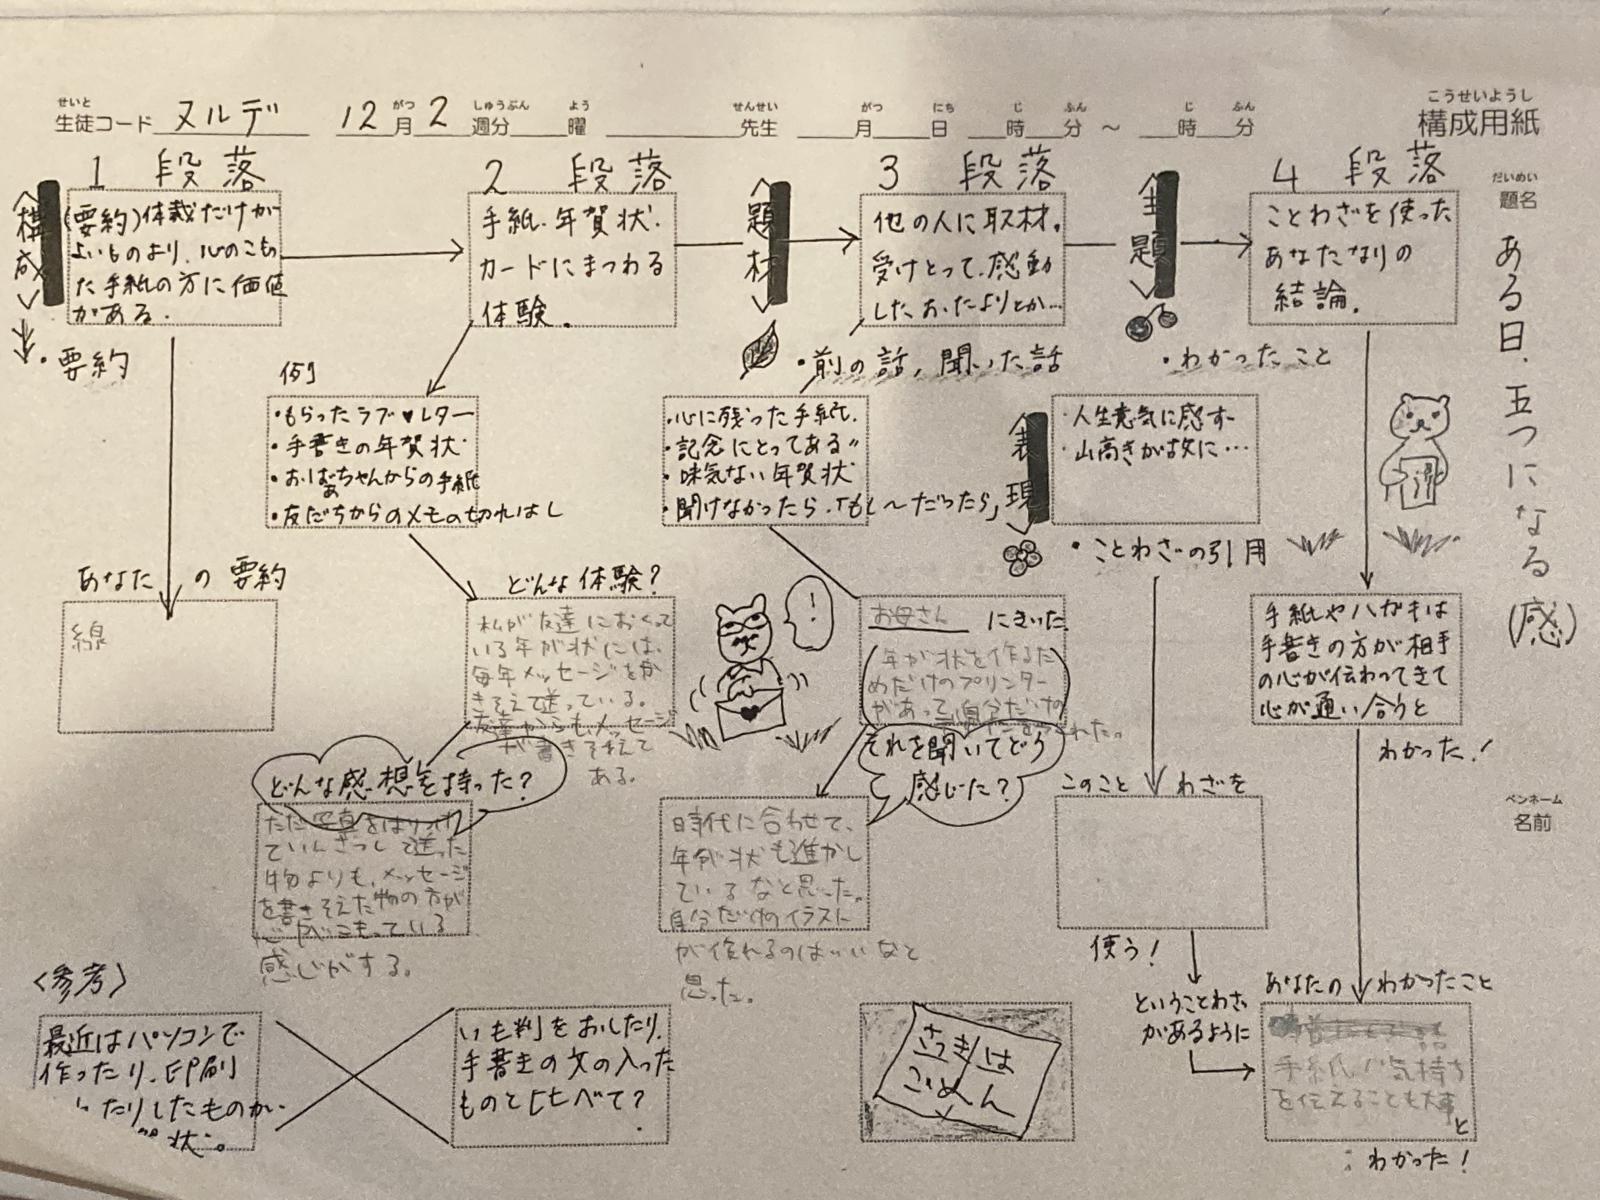 せいと
生徒コード ヌルデ 12月2週分 曜 先生 月 日 時 分 ～ 時 分
がつ しゅうぶん よう せんせい がつ にち じ ふん じ ふん
こうせいようし
構成用紙
だいめい
題名
ある日、五つになる (感)
ペンネーム
名前
1 段落
構成
(要約)体裁だけが
よいものより、心のこもっ
た手紙の方に価値
がある.
・要約
あなたの要約
線
2 段落
手紙.年賀状.
カードにまつわる
体験.
題材
例
・もらったラブ♥レター
・手書きの年賀状
・おばあちゃんからの手紙
・友だちからのメモの切れはし
どんな体験?
私が友達におくって
いる年が状には、
毎年メッセージをか
きそえて送っている。
友達からもメッセージ
が書きそえて
ある。
どんな感想を持った?
ただ写真をはりつけ
ていんさつして送った
物よりも、メッセージ
を書きそえた物の方が
心がこもっている
感じがする。
3 段落
他の人に取材.
受けとって、感動
した、おたよりとか…
・前の話,聞いた話
・心に残った手紙.
・記念にとってある〃
・味気ない年賀状
・聞けなかったら.「もし～だったら」
お母さん にきいた
年が状を作るた
めだけのプリンター
があって自分だけの
それを聞いてどう
感じた?
時代に合わせて、
年が状も進かし
ているなと思った。
自分だけのイラスト
が作れるのはいいなと
思った。
主題
4 段落
ことわざを使った
あなたなりの
結論.
・わかったこと
表現
・人生意気に感ず
・山高きが故に…
・ことわざの引用
このことわざを
使う!
ということわざ
があるように
手紙やハガキは
手書きの方が相手
の心が伝わってきて
心が通い合うと
わかった!
あなたのわかったこと
手紙、が気持ち
を伝えることも大事と
わかった!
!
<参考>
最近はパソコンで
作ったり、印刷
たりしたものが.
状.
いも判をおしたり.
手書きの文の入った
ものと比べて?
さつき/は
ごめん